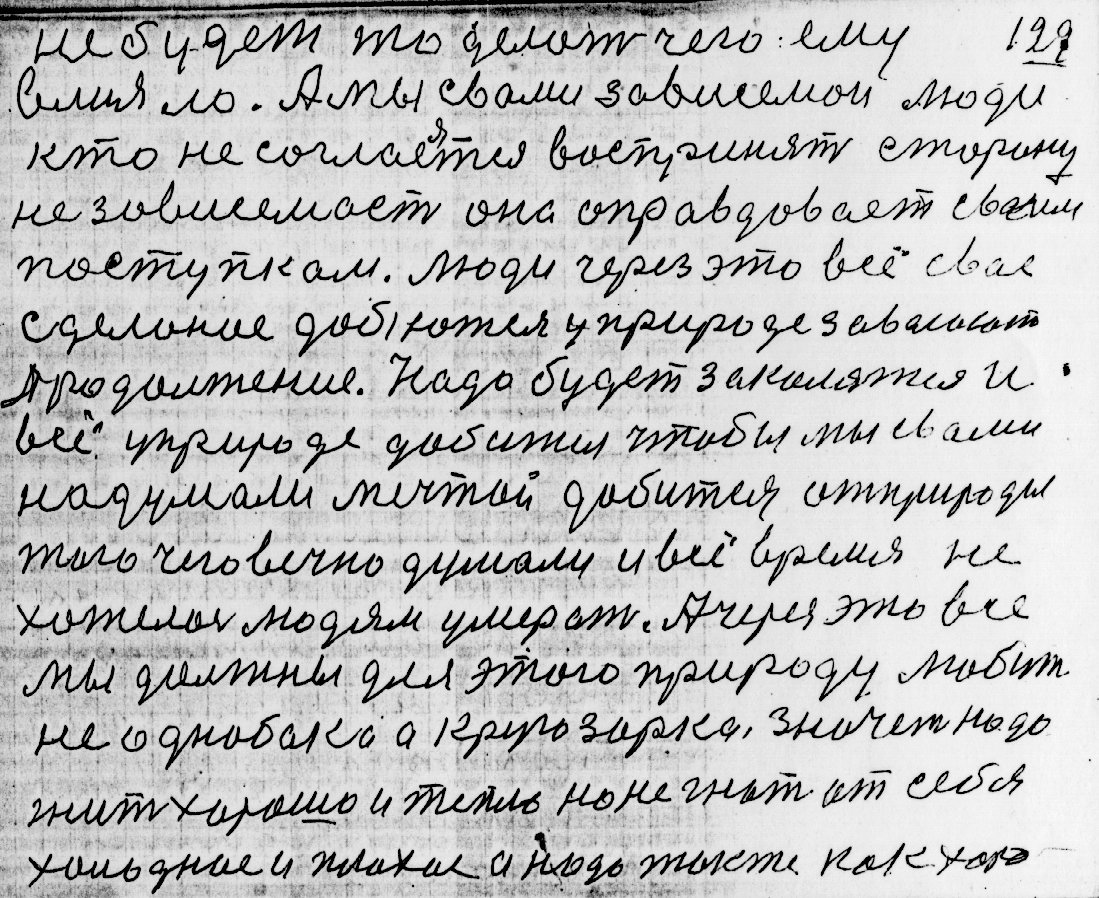 не будет то делат чего ему 129
влияло. А мы свами зависемои люди
кто не соглаятся воспринят сторону
не зависемост она оправдовает своим
поступкам. Люди через это всё свае
сделоное добютея у природе завоюют
продолжение. Надо будет закалятся и
всё уприроде добится чтобы мы свами
надумали мечтой добится отприроды
того чего вечно думали и всё время не
хотелос людям умерат. А через это все
мы должны для этого природу любит
не однобоко а кругозорка. значет надо
жит хорошо и тепло но не гнат от себя
холодное и плохое а надо также как хоро